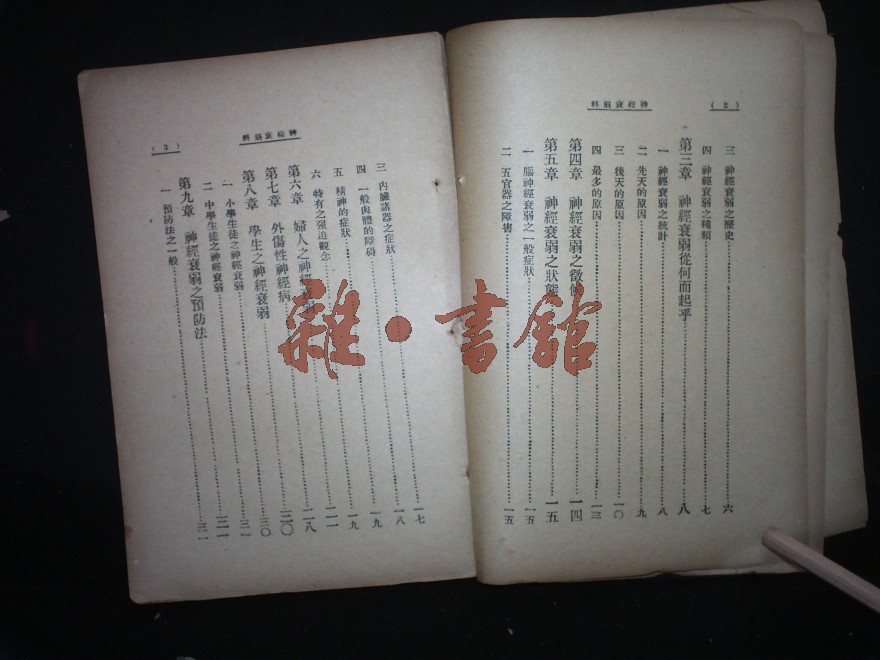 (2)
神經衰弱科
三 神經衰弱之歷史 六
四 神經衰弱之種類 七
第三章 神經衰弱從何而起乎 八
一 神經衰弱之統計 八
二 先天的原因 九
三 後天的原因 一〇
四 最多的原因 一三
第四章 神經衰弱之徵候 一四
第五章 神經衰弱之狀態 一五
一 腦神經衰弱之一般症狀 一五
二 五官器之障害 一五
神經衰弱科
(3)
三 內臟諸器之症狀 一七
四 一般肉體的障碍 一八
五 精神的症狀 一九
六 特有之强迫觀念 一九
第六章 婦人之神經衰弱
第七章 外傷性神經病 二八
第八章 學生之神經衰弱
一 小學生徒之神經衰弱
二 中學生徒之神經衰弱
第九章 神經衰弱之預防法
一 預防法之一般
雜·書館